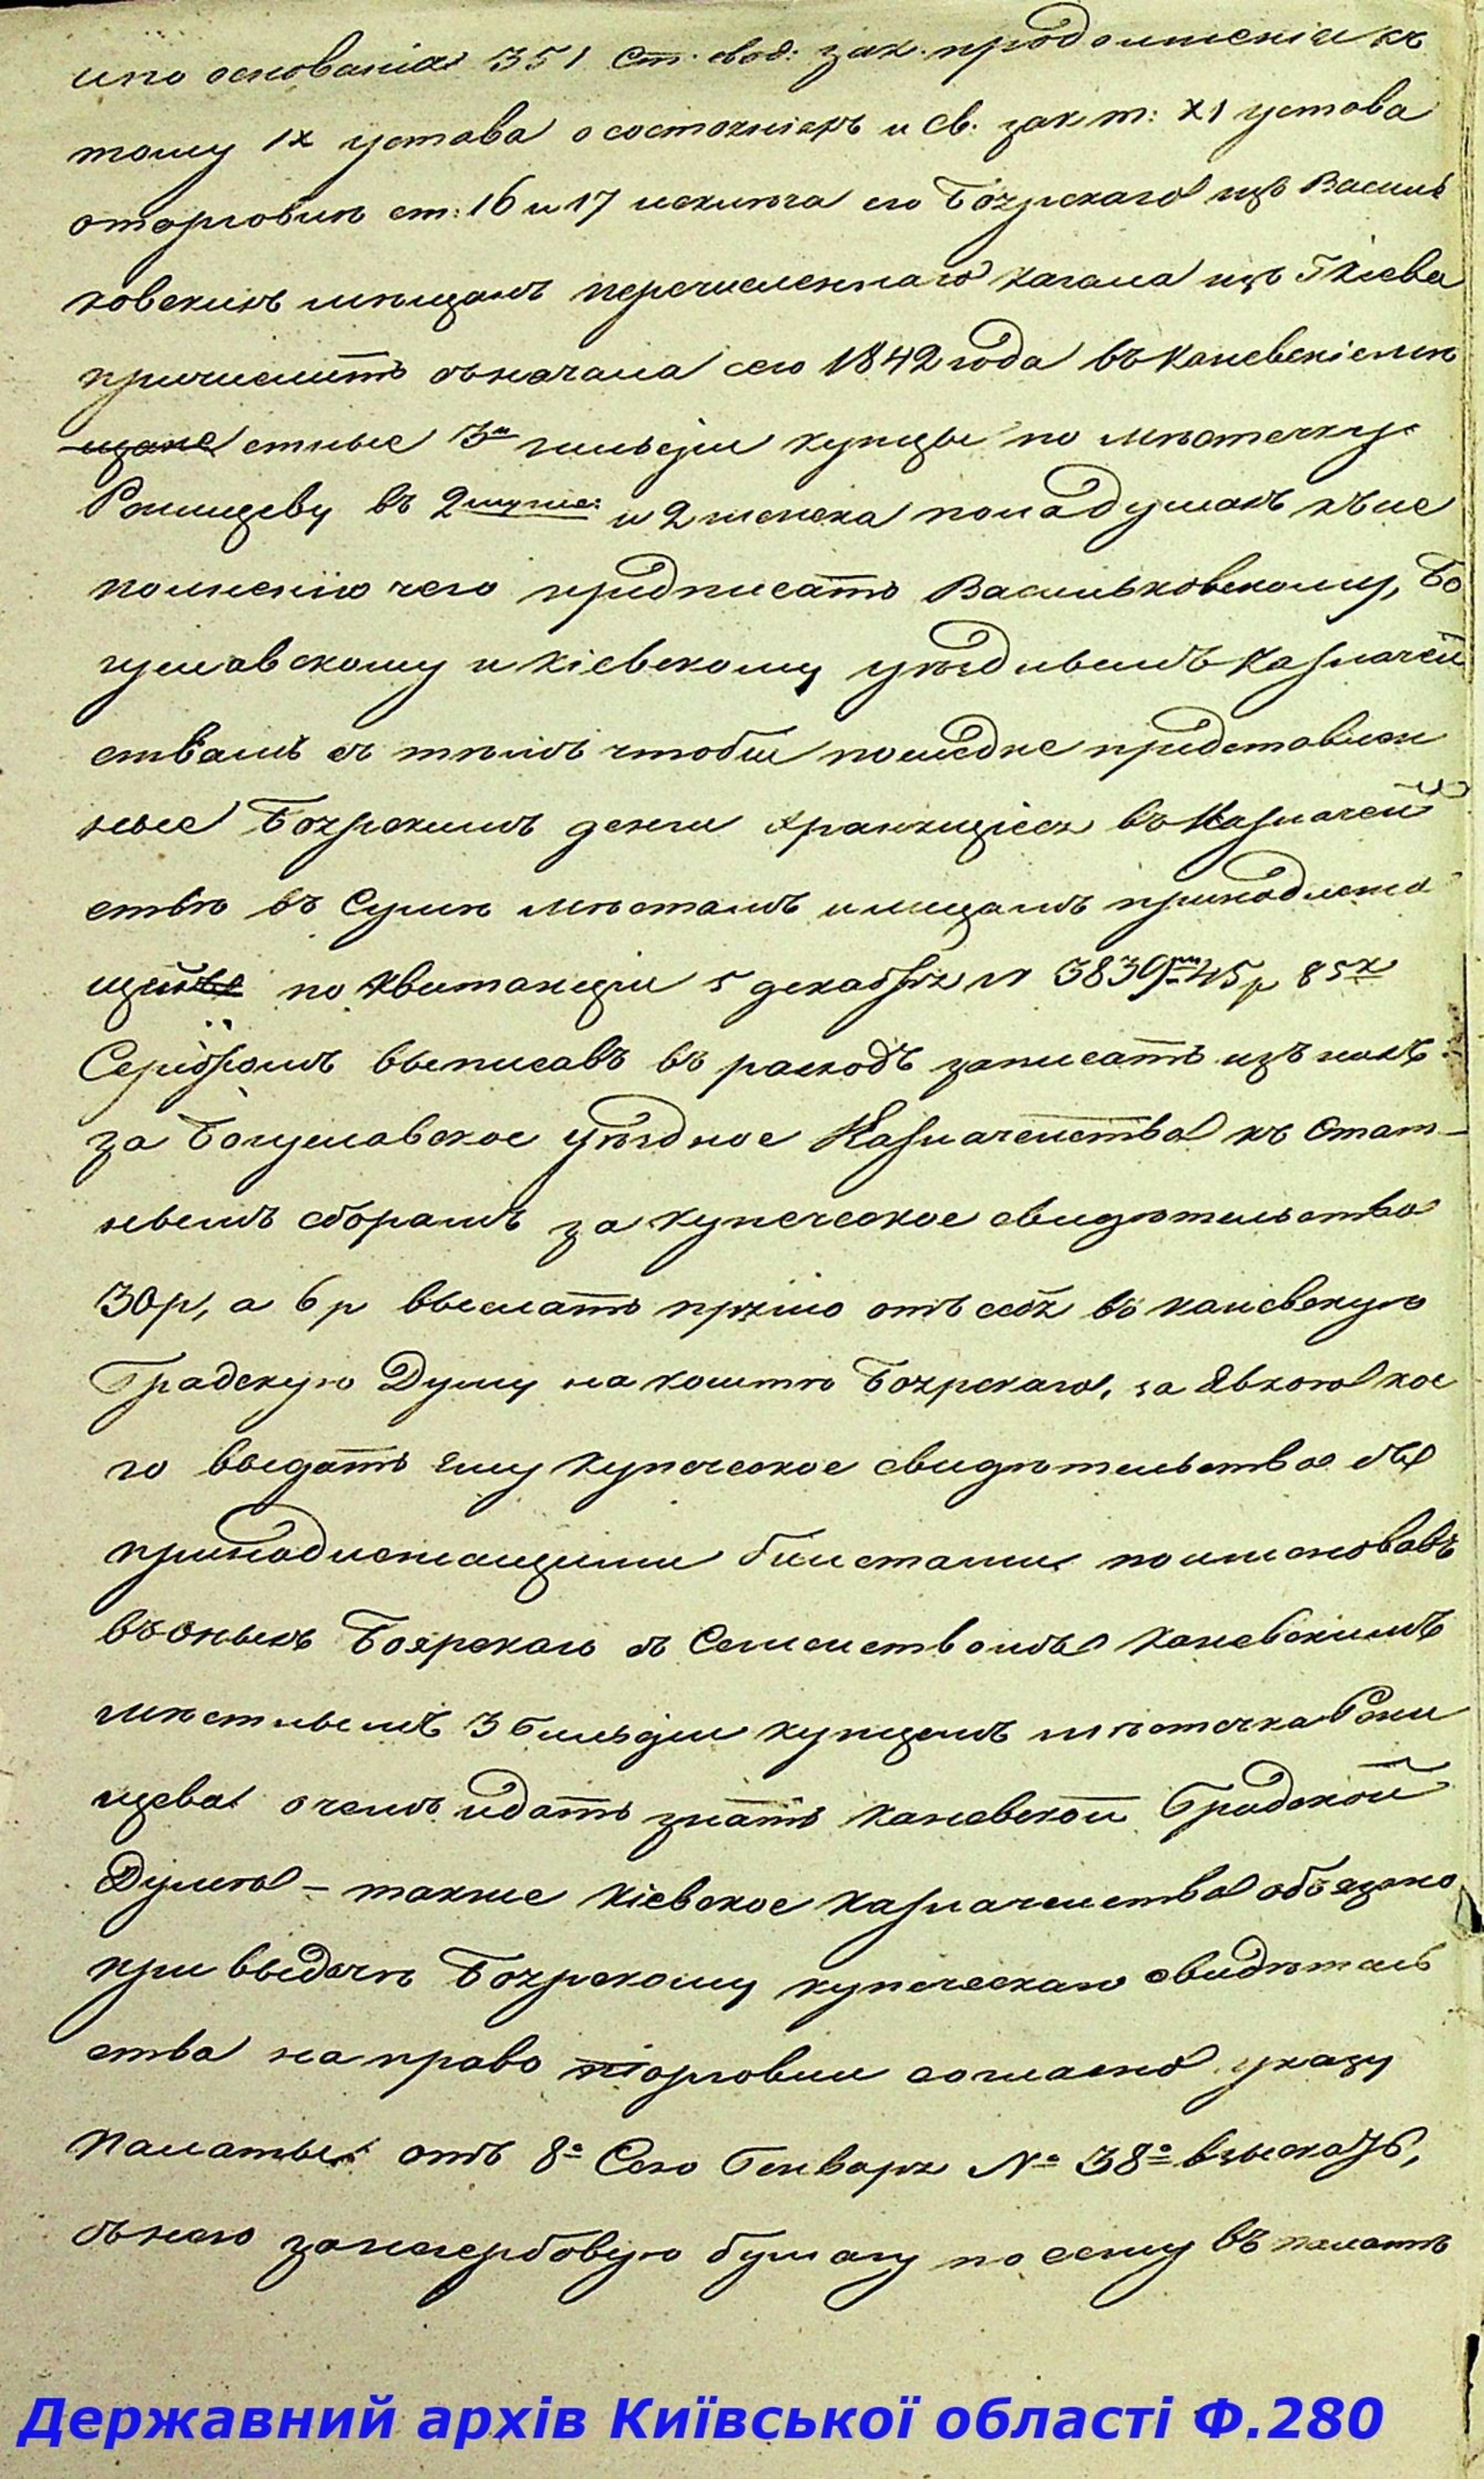 ипо основанія 351 Ст. свод: зак. продолженія къ
тому IX устава о состояніяхъ и Св. зак т: XI устава
оторговли ст: 16 и 17 исключа его Боярскаго изъ Василь
ковскихъ мещанъ перечисленнаго кагала изъ Г Кіева
причислить съначала сего 1842 года въ Каневскіе мѣ
щане стные 3й гильдіи купцы по мѣстечку
Ронищеву въ 2 муже: и 2 женска пола душахъ къ ис
полненію чего предписать Васильковскому, Бо
гуславскому и Кіевскому уѣзднымъ Казначей
ствамъ съ тѣмъ чтобы последне представлен
ные Боярскимъ денги хранящіеся въ Казначей
ствѣ въ Сумѣ мѣстамъ и лицамъ принадлежа
щей по квитанціи 5 декабря № 3839й 45 р 85 к
Серебромъ выписавъ въ расходъ записать изъ нихъ
за Богуславское уѣздное Казначейство къ Стат-
нымъ сборамъ за купеческое свидѣтельство
30 р, а 6 р выслать прямо отъ себя въ каневскую
Градскую Думу на коштъ Боярскаго, за явкою кое
го выдать ему купеческое свидѣтельство съ
принадлежащими билетами поименовавъ
въ оныхъ Боярскаго съ Семействомъ каневскимъ
мѣстнымъ 3 Гильдіи купцемъ мѣстечка Рони
щева о чемъ и дать знать каневской Градской
Думѣ - также Кіевское казначейство обязано
при выдачѣ Боярскому купеческаго свидѣтель
ства на право торговли согласно указу
Палаты отъ 8го Сего Генваря № 38го взыскать,
съ него за негербовую бумагу по сему въ палатѣ
Державний архів Київської області Ф.280